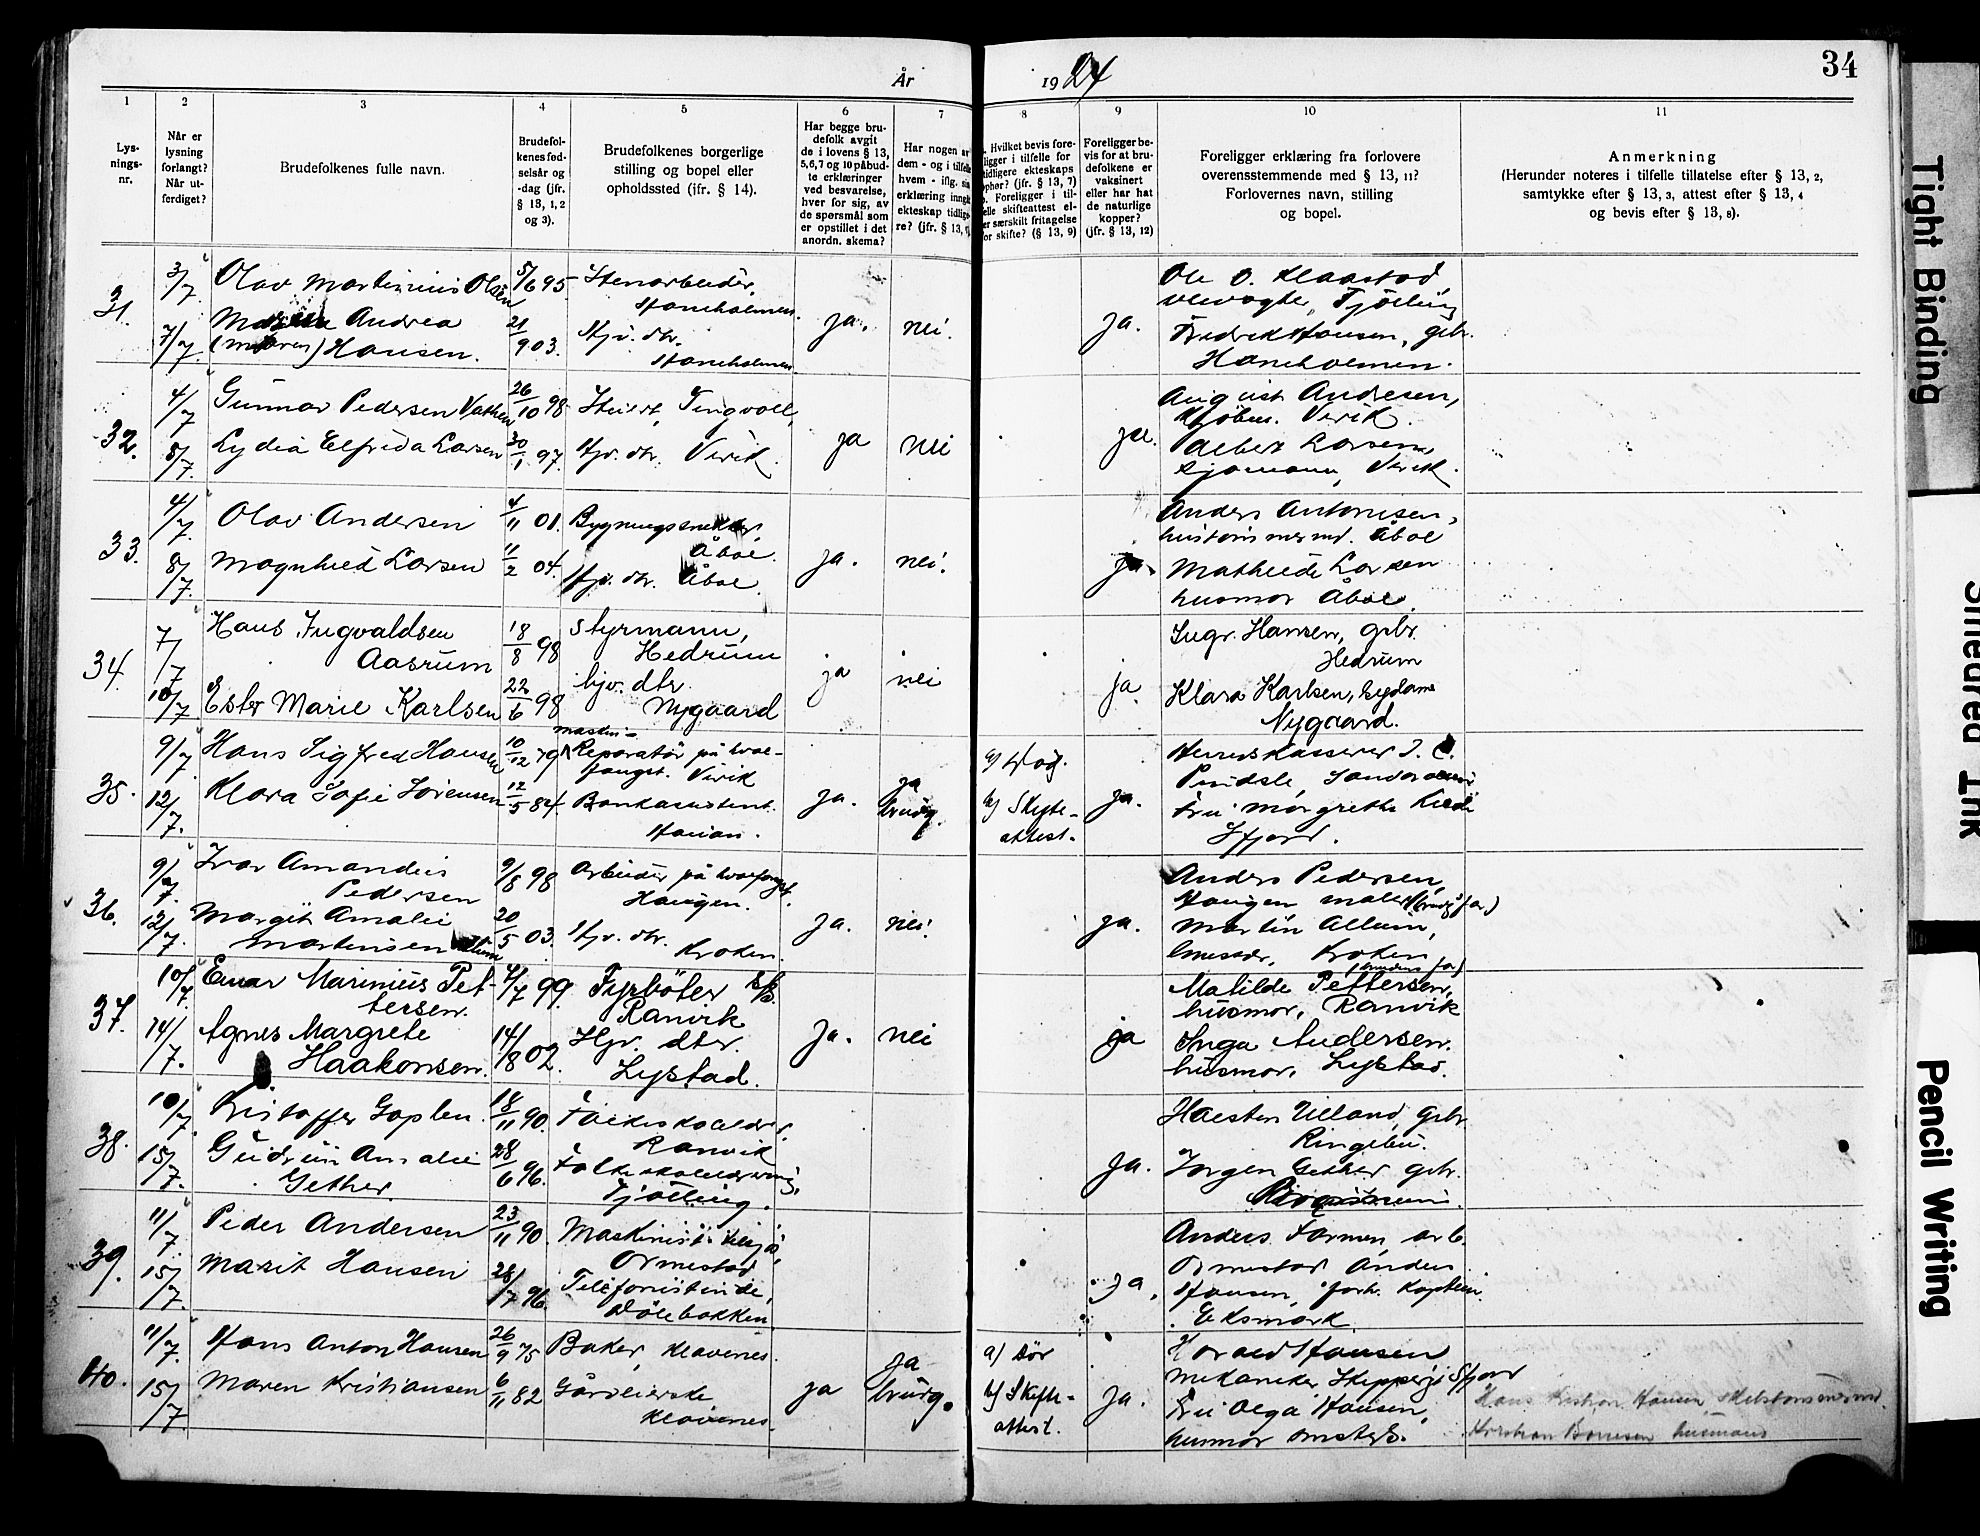 År 1924
34
1
2
3
4
5
6
7
8
9
10
11
Lys-
nings-
nr.
Når er
lysning
forlangt?
Når ut-
ferdiget?
Brudefolkenes fulle navn.
Brudefol-
kenes fød-
selsår og
-dag (jfr.
§ 13, 1, 2
og 3).
Brudefolkenes borgerlige
stilling og bopel eller
opholdssted (jfr. § 14).
Har begge bru-
defolk avgit
de i lovens § 13,
5,6,7 og 10 påbud-
te erklæringer
ved besvarelse,
hver for sig, av
de spørsmål som
er opstillet i det
anordn. skema?
Har nogen av
dem - og i tilfelle
hvem - iflg. sin
erklæring inngåt
ekteskap tidlige-
re? (jfr. § 13,
Hvilket bevis fore-
ligger i tilfelle for
tidligere ekteskaps
ophør? (jfr. § 13, 7)
b. Foreligger i til-
felle skifteattest el-
ler særskilt fritagelse
for skifte? (§ 13, 9)
Foreligger be-
vis for at bru-
defolkene er
vaksinert
eller har hat
de naturlige
kopper?
(jfr. § 13, 12)
Foreligger erklæring fra forlovere
overensstemmende med § 13, 11?
Forlovernes navn, stilling
og bopel.
Anmerkning
(Herunder noteres i tilfelle tillatelse efter § 13, 2,
samtykke efter § 13, 3, attest efter § 13, 4
og bevis efter § 13, 8).
31.
3/7
7/7.
Olav Martinius Olsen
Andrea
(Maren) Hansen.
5/6 95
21/9 03.
Stenarbeider,
Haneholmen.
Hjv. dtr.
Haneholmen.
ja.
nei.
ja.
Ole O. Klaastad,
Tjölling
Fredrik Hansen, gbr.
Haneholmen.
32.
4/7
8/7.
Gunnar Pedersen
Lydia Elfrida Larsen
26/10 98
30/1 97.
Stuert, Tingvoll,
Hjv. dtr. Virik.
ja
nei
ja.
August Andresen,
Virik.
Albert Larsen,
sjømann, Virik.
33.
4/7.
8/7.
Olav Andersen
Magnhild Larsen
4/11 01.
11/2 04.
Bygningssnekker,
Åboe.
Hjv. dtr. Åboe.
ja.
nei.
ja.
Anders Antonisen,
hustømmermd. Åboe
Mathilde Larsen
husmor Åboe.
34.
7/7
10/7
Hans Ingvaldsen
Aasrum
Ester Marie Karlsen
18/8 98
22/6 98
Styrmann,
Hedrum
hjv. dtr.
Nygaard
ja
nei
ja.
Ingv. Hansen, gbr.
Hedrum
Klara Karlsen, sydame
Nygaard.
35.
9/7.
12/7.
Hans Sigfred Hansen
Klara Sofie Sörensen
10/12 79
12/5 84.
maskin-
Reparatör på hval-
fangst. Virik
Bankassistent.
Havian.
ja.
ja
brudg.
b) Skifte-
attest.
ja.
Herredskasserer J. C.
Pindsle, Sandar
Fru Margrethe Lied
Sfjord.
36.
9/7.
12/7.
Ivar Amandus
Pedersen
Margit Amalie
Martinsen Allum
9/8 98
20/5 03.
Arbeider på hvalfangst.
Haugen.
Hjv. dtr.
Kroken.
ja.
nei.
ja.
Anders Pedersen,
Haugen maler (brudg. far)
Martin Allum,
Kroken
(brudens far)
37.
10/7.
14/7.
Einar Marinius Pet-
tersen.
Agnes Margrete
Haakonsen.
4/7 99
14/8 02.
Fyrböter
Ranvik
Hjv. dter.
Lystad.
ja.
nei
ja
Matilde Pettersen,
husmor, Ranvik
Inga Andersen.
husmor. Lystad.
38.
10/7.
15/7.
Kristoffer Goplen.
Gudrun Amalie
Gether.
18/11 90.
28/6 96.
Folkeskolelær.
Ranvik
Folkeskolelærerinde,
Tjölling.
ja.
Halsten Ulland, gbr.
Ringebu.
Jörgen Gether gbr.
39.
11/7.
15/7.
Peder Andersen
Marit Hansen
23/11 90.
28/7 96.
Maskinist
Ormestad
Telefonistinde,
Dölebakken
ja.
Anders Formen, arb.
Ormestad Anders
Hansen, forh. Kaptein.
Eksmark.
40.
11/7.
15/7
Hans Anton Hansen
Maren Kristiansen
26/9 75
6/11 82
Baker, Klavenes.
Gårdeierske
Klavenes
ja
ja
brudg.
a) Dör
b) Skifte-
attest.
ja.
Harald Hansen
mekaniker, Skipperg. Sfjord
Fru Olga Hansen,
husmor
Hans Kristian Hansen,
Kristian husmand
Tight Binding
Smeared Ink
Pencil Writing